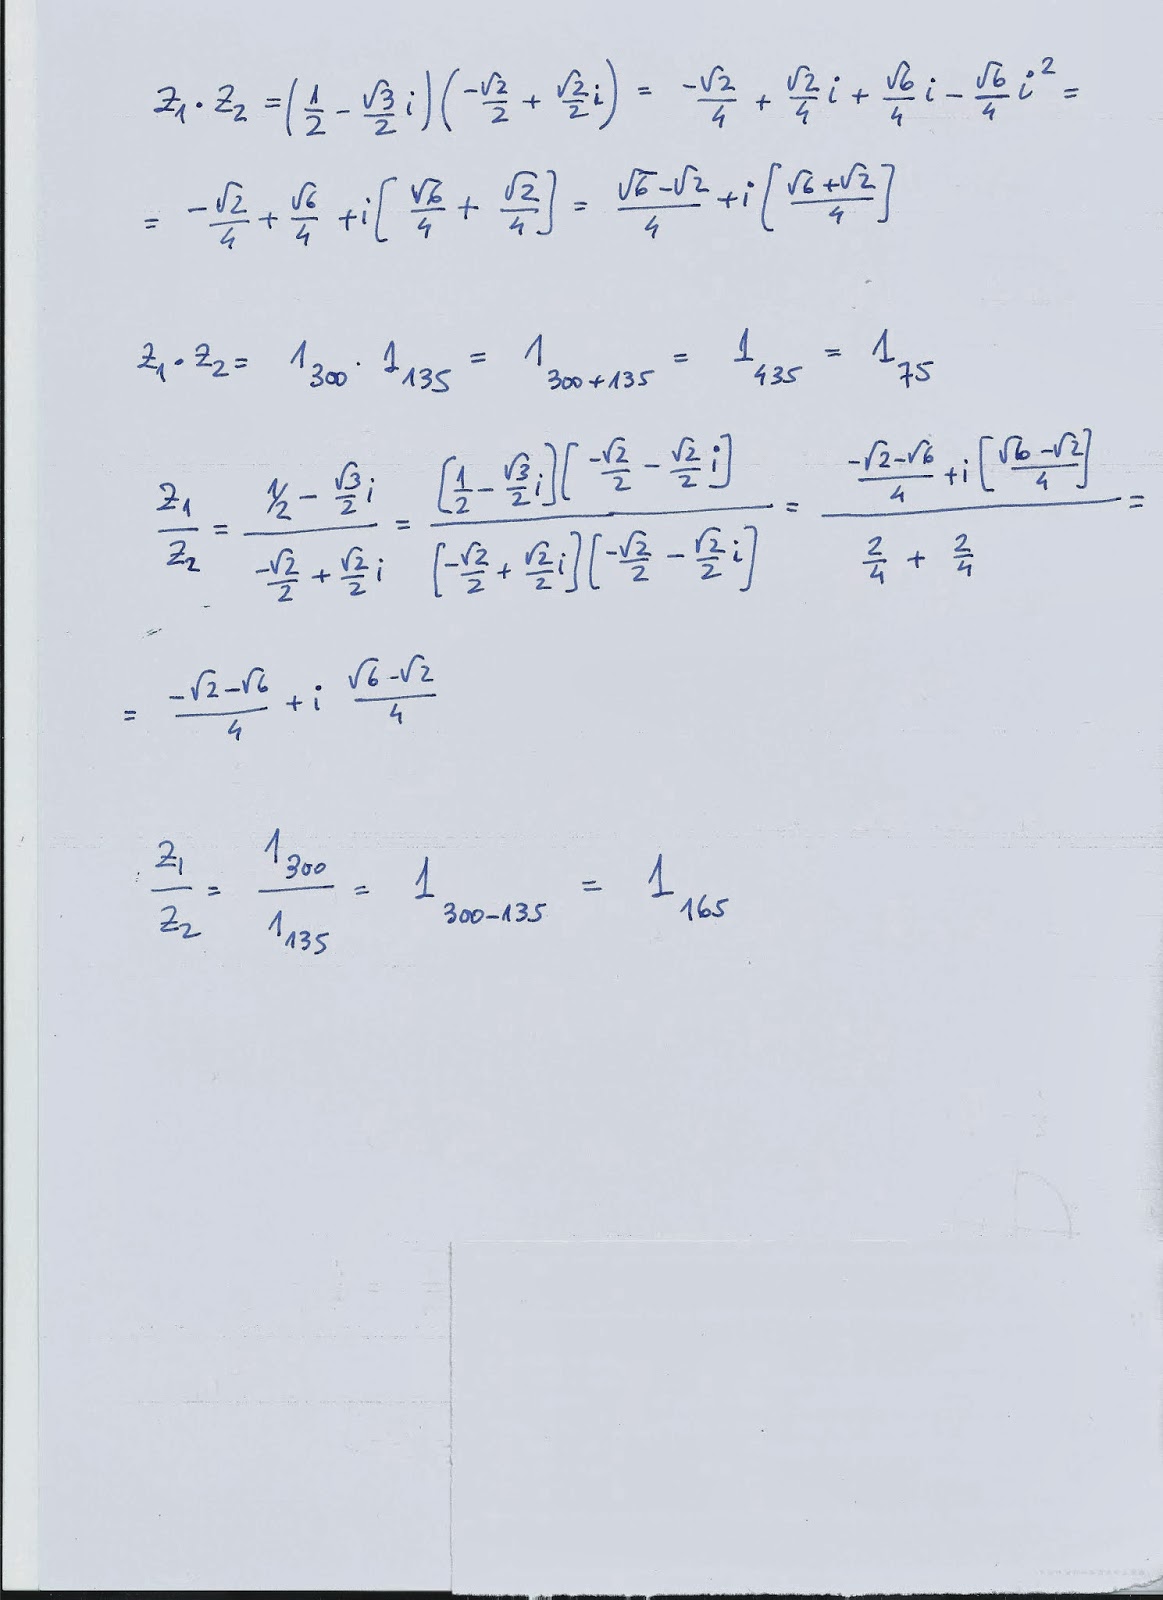 z₁ · z₂ = (1/2 - √3/2 i)(-√2/2 + √2/2 i) = -√2/4 + √2/4 i + √6/4 i - √6/4 i² =
= -√2/4 + √6/4 + i[√6/4 + √2/4] = (√6-√2)/4 + i[(√6+√2)/4]
z₁ · z₂ = 1₃₀₀ · 1₁₃₅ = 1₃₀₀₊₁₃₅ = 1₄₃₅ = 1₇₅
z₁/z₂ = (1/2 - √3/2 i)/(-√2/2 + √2/2 i) = ([1/2 - √3/2 i][-√2/2 - √2/2 i])/([-√2/2 + √2/2 i][-√2/2 - √2/2 i]) = ((-√2-√6)/4 + i[(√6-√2)/4])/(2/4 + 2/4) =
= (-√2-√6)/4 + i (√6-√2)/4
z₁/z₂ = 1₃₀₀/1₁₃₅ = 1₃₀₀₋₁₃₅ = 1₁₆₅